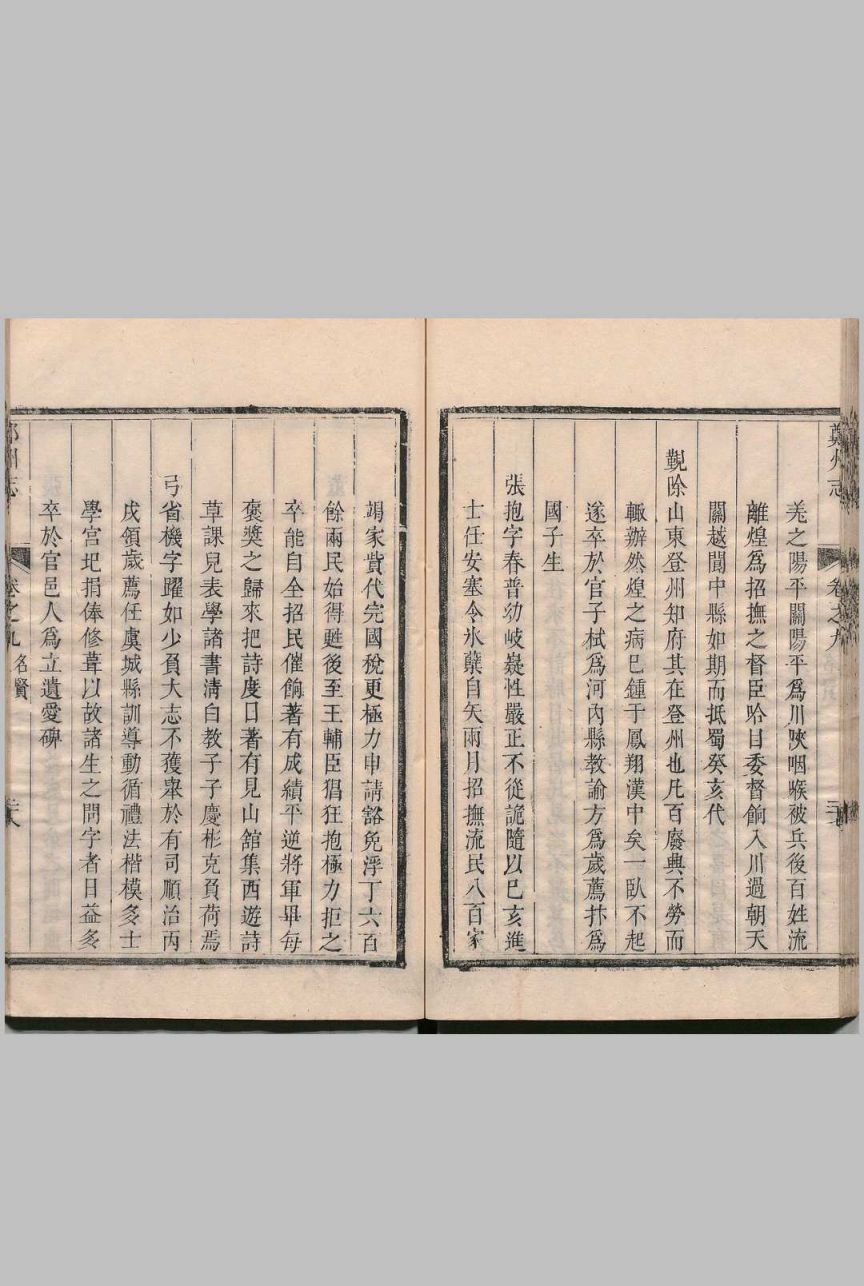 鄭州志
卷之九
羌之陽平關陽平爲川陜咽喉被兵後百姓流
離煌爲招撫之督臣哈日委督餉入川過朝天
關越閬中縣如期而抵蜀癸亥代
覲陞山東登州知府其在登州也凡百廢典不勞而
輙辦然煌之病巳鍾于鳳翔漢中矣一臥不起
遂卒於官子栻爲河內縣教諭方爲歲薦抃爲
國子生
張抱字春普幼岐嶷性嚴正不從詭隨以巳亥進
士任安塞令氷蘗自矢兩月招撫流民八百家
竭家貲代完國稅更極力申請豁免浮丁六百
餘兩民始得甦後至王輔臣猖狂抱極力拒之
卒能自全招民催餉著有成績平逆將軍畢每
褒獎之歸來把詩度日著有見山舘集西遊詩
草課兒表學諸書淸白教子子慶彬克負荷焉
弓省機字躍如少負大志不獲衆於有司順治丙
戌領歲薦任虞城縣訓導動循禮法楷模多士
學宮圯捐俸修葺以故諸生之問字者日益多
卒於官邑人爲立遺愛碑
鄭州志
卷之九
名賢